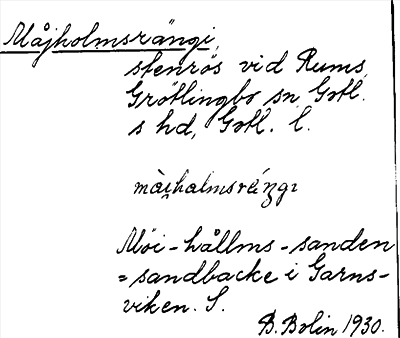 Måjholmsrängi,
stenrös vid Rums,
Grötlingbo sn Gotl.
s hd, Gotl. l.
Möi-hållms-sanden
= sandbacke i Garns-
viken. S.
B. Bolin 1930.